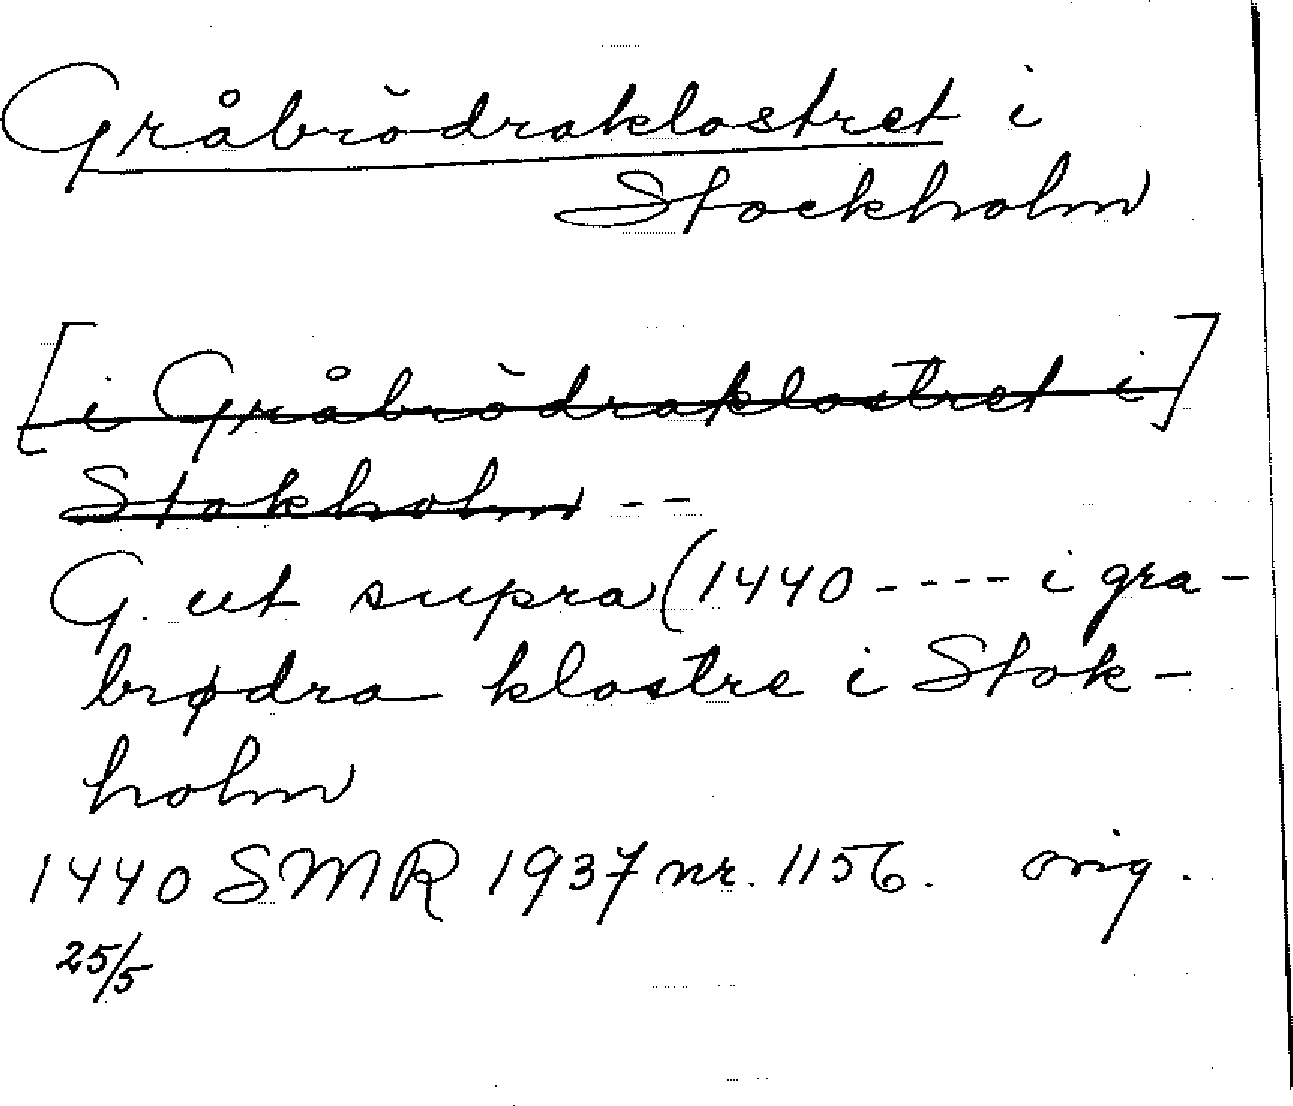 Gråbrödraklostret i
Stockholm
[i Gråbrödraklostret i]
Stokholm - -
G. ut supra (1440 - - - - i gra-
brødra klostre i Stok-
holm
1440 SMR 1937 nr. 1156. orig.
25/5